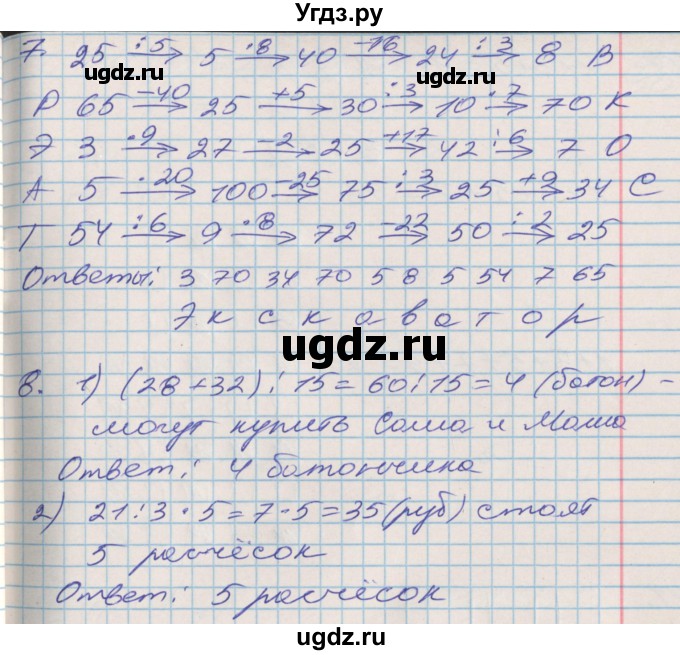 Угдз.ру
7. 25 :5→ 5 ·8→ 40 -16→ 24 :3→ 8 В
Р 65 -40→ 25 +5→ 30 :3→ 10 ·7→ 70 К
Э 3 ·9→ 27 -2→ 25 +17→ 42 :6→ 7 О
А 5 ·20→ 100 -25→ 75 :3→ 25 +9→ 34 С
Т 54 :6→ 9 ·8→ 72 -22→ 50 :2→ 25
Ответы: 3 70 34 70 5 8 5 54 7 65
Э к с к а в а т о р
8. 1) (28+32):15=60:15=4 (батон) -
могут купить Саша и Маша
Ответ: 4 батончика
2) 21:3·5=7·5=35(руб) стоят
5 расчёсок
Ответ: 5 расчёсок
ugdz.ru
ugdz.ru
ugdz.ru
ugdz.ru
ugdz.ru
ugdz.ru
ugdz.ru